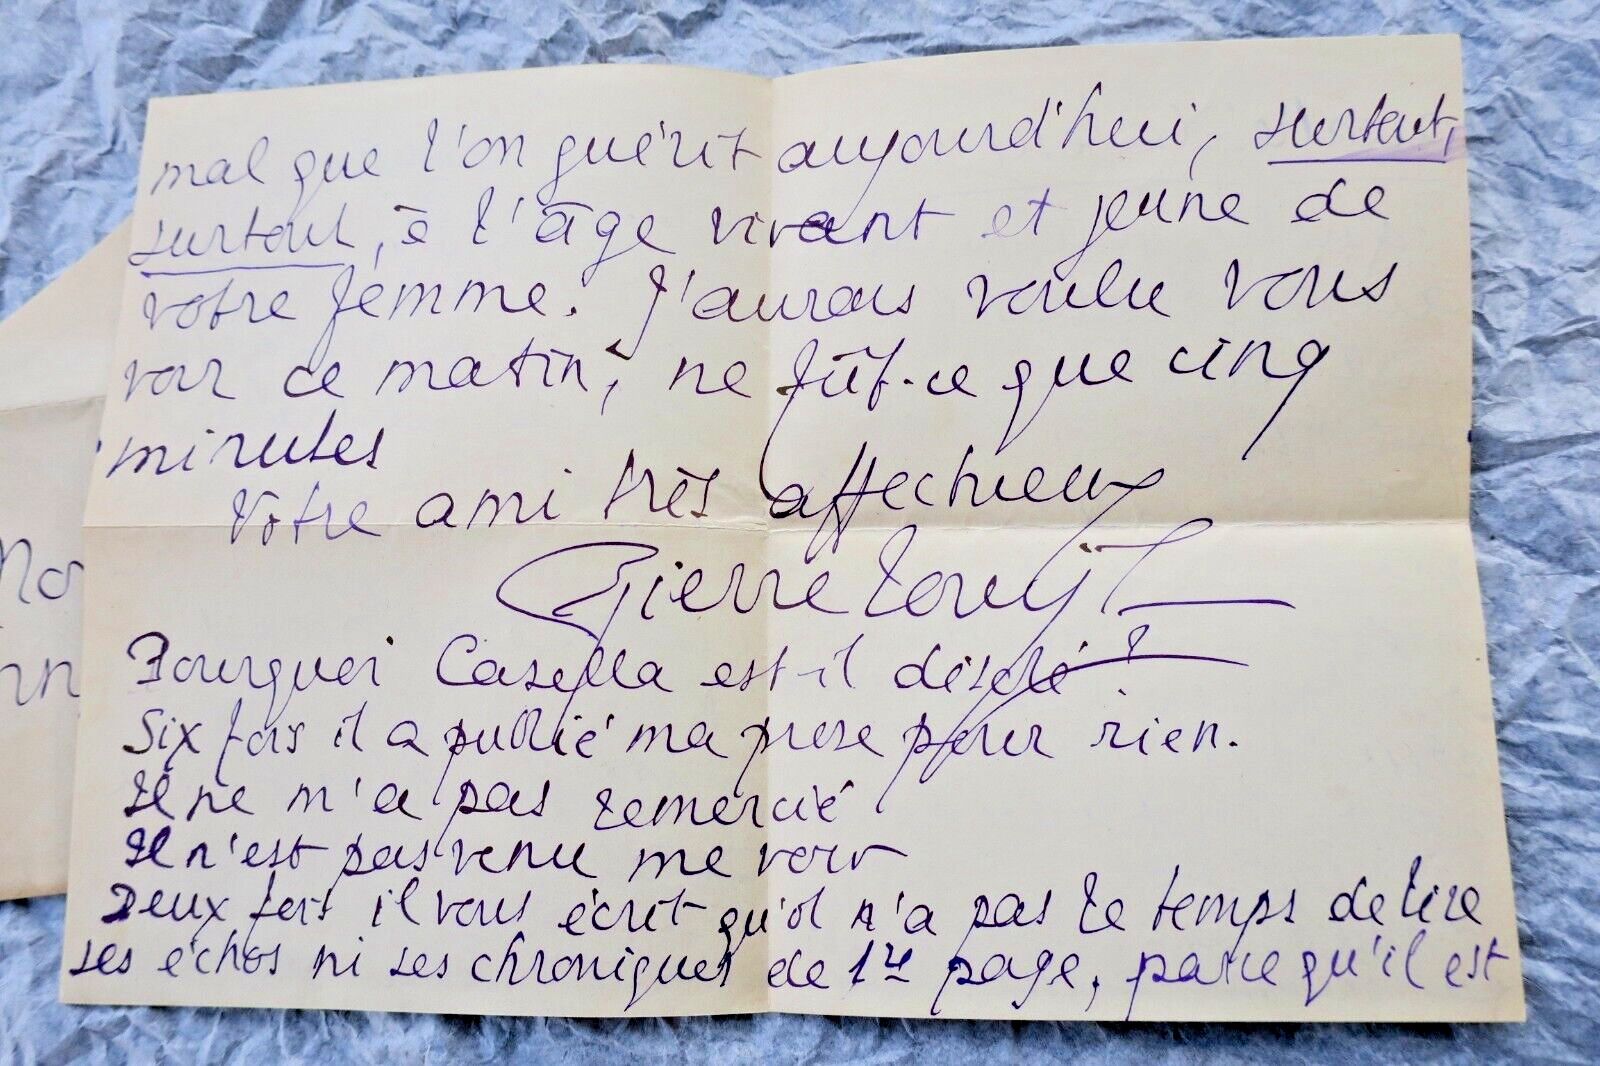 mal que l'on guérit aujourd'hui, surtout,
surtout, à l'âge vivant et jeune de
votre femme. J'aurais voulu vous
voir ce matin, ne fût-ce que cinq
minutes
Votre ami très affectueux
Pierre Louÿs
Pourquoi Casella est-il désolé ?
Six fois il a publié ma prose pour rien.
Il ne m'a pas remercié
Il n'est pas venu me voir
Deux fois il vous écrit qu'il n'a pas le temps de lire
ses échos ni ses chroniques de 1re page, parce qu'il est